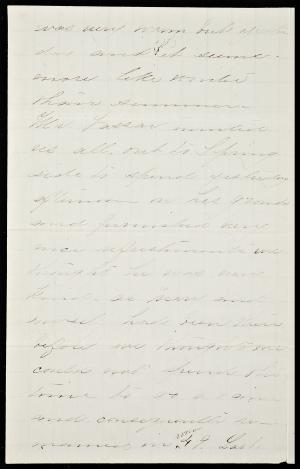 was very warm but yester
day and it seems
more like winter
than summer.
Mr Vassar invited
us all out to Spring
side to spend yesterday
afternoon in his grounds
and furnished very
nice refreshments we
thought he was very
kind
and
had seen
before we thought we
could not spend the
time to go again
and consequently re
mained in room 49.